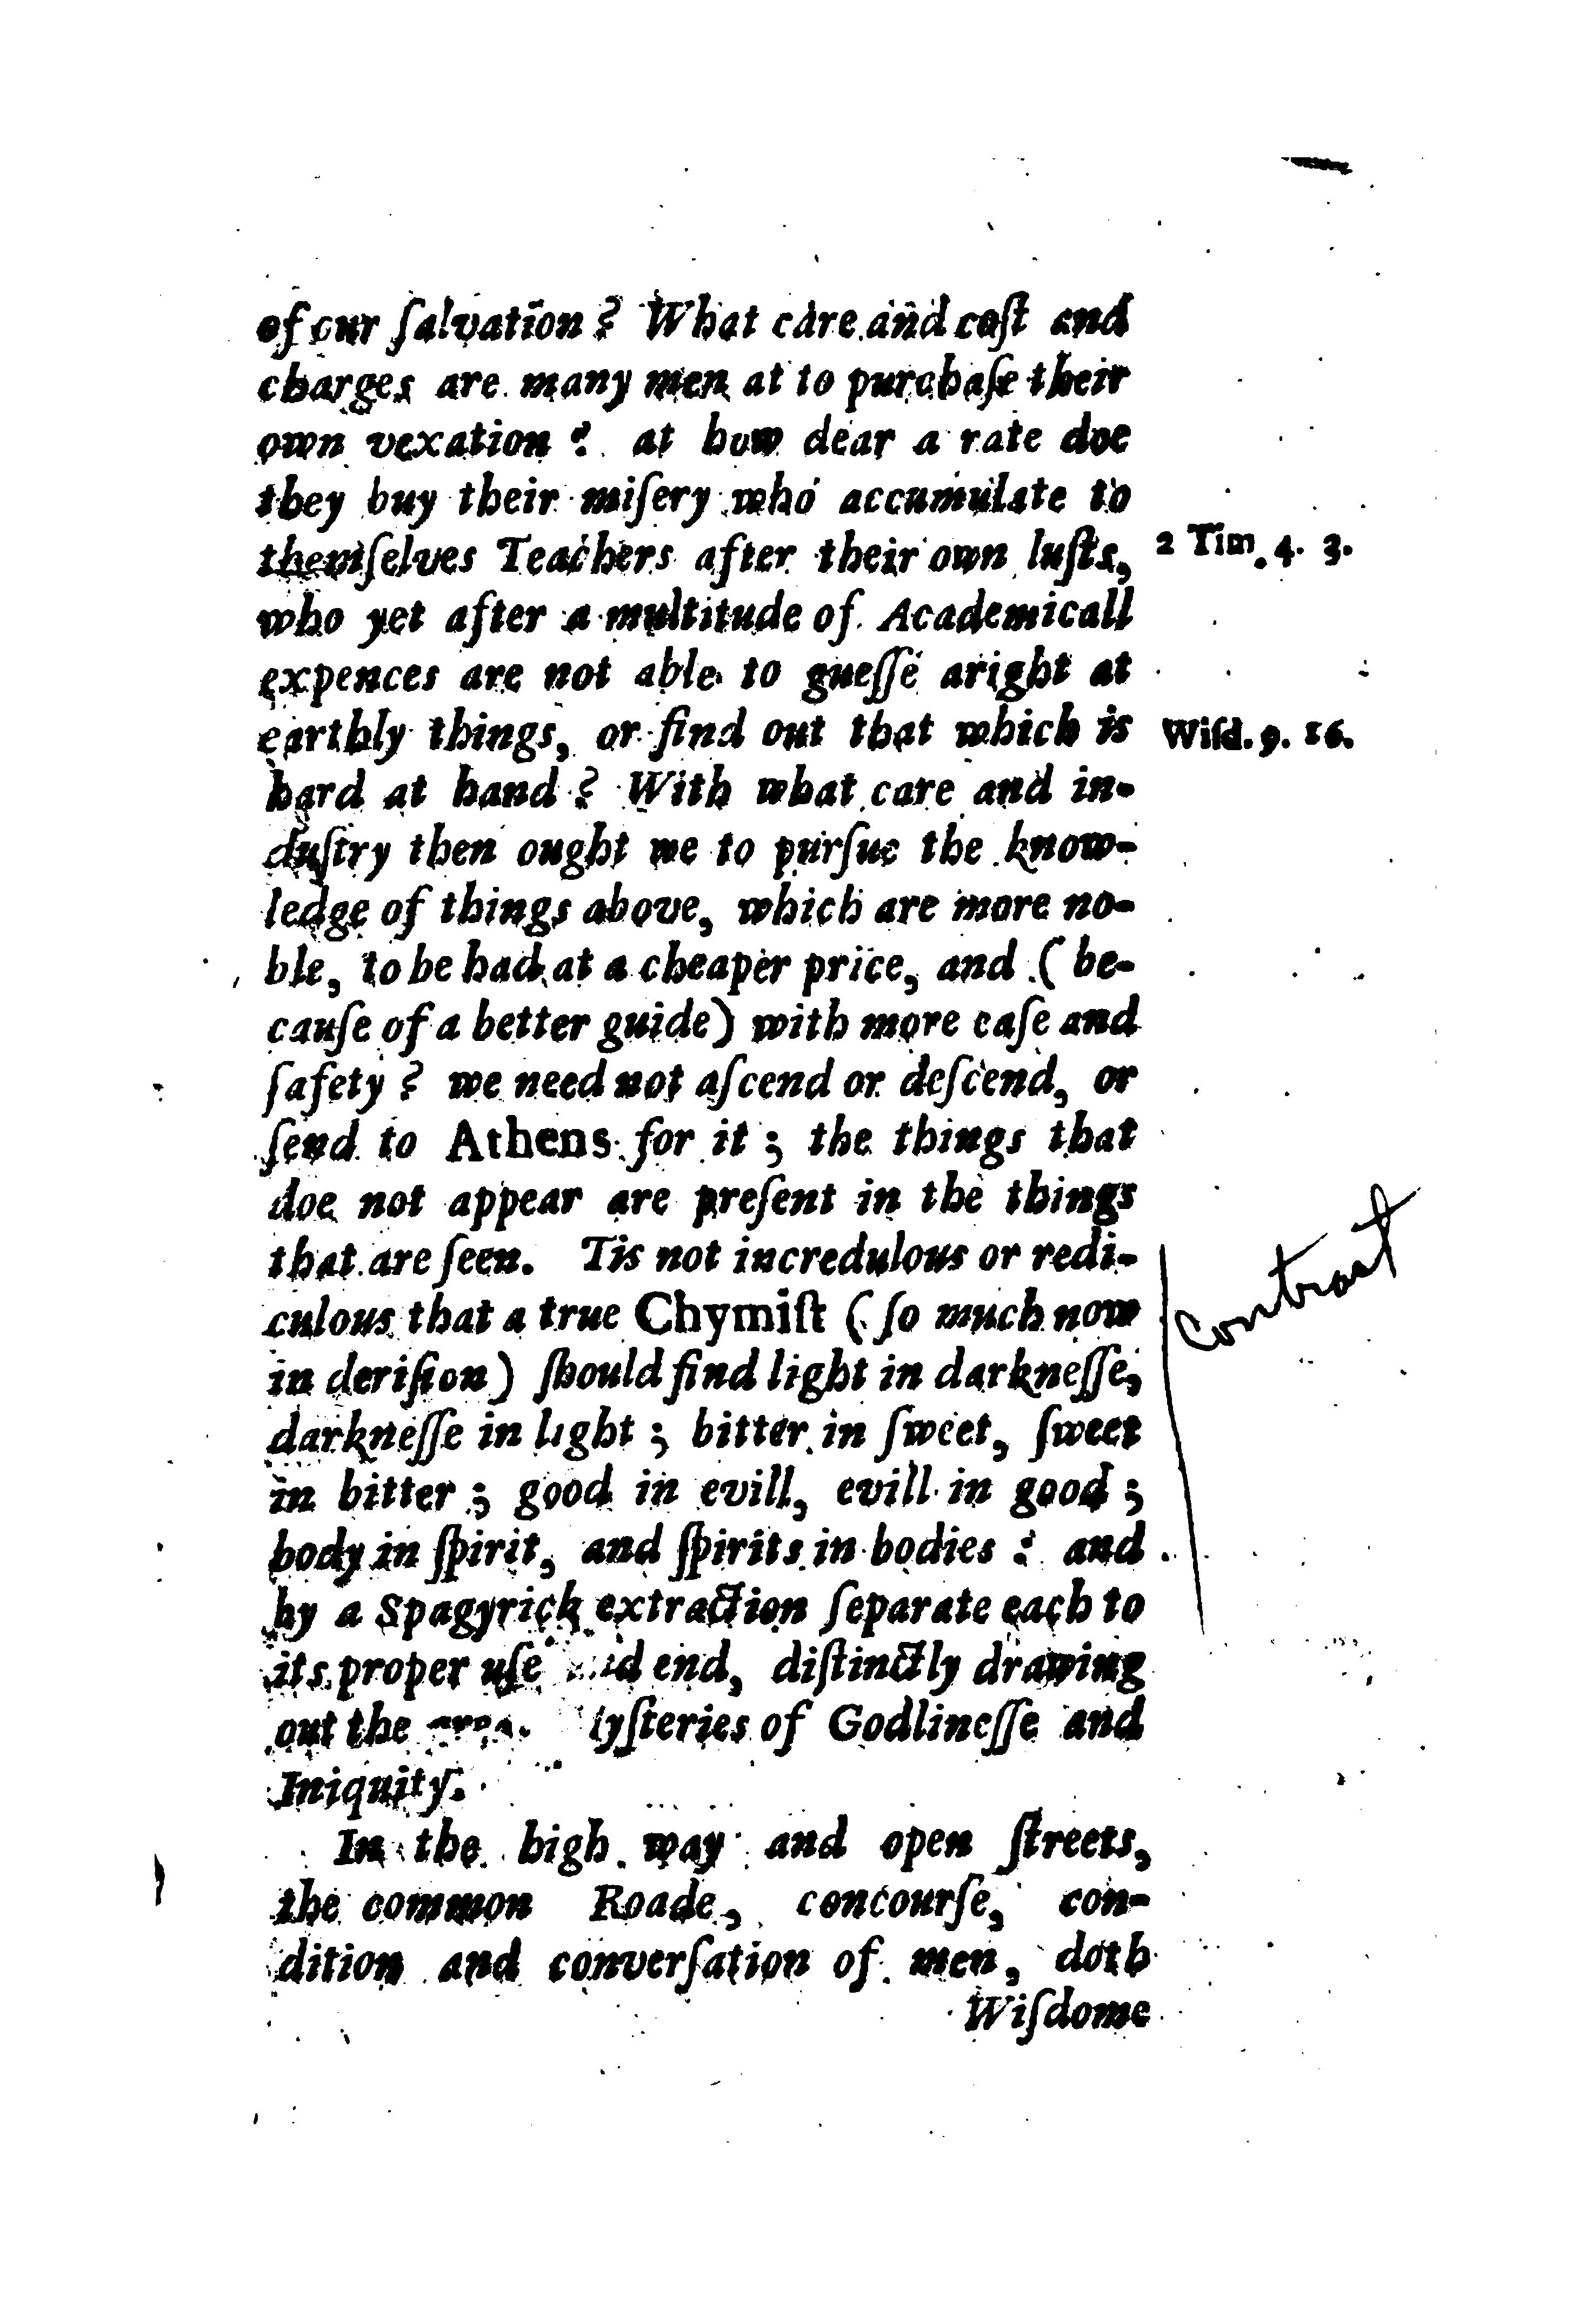 of our ſalvation? What care and coſt and
charges are many men at to purchaſe their
own vexation? at how dear a rate doe
they buy their miſery who accumulate to
themſelves Teachers after their own luſts,
2 Tim. 4. 3.
who yet after a multitude of Academicall
expences are not able to gueſſe aright at
earthly things, or find out that which is
Wiſd. 9. 16.
hard at hand? With what care and in-
duſtry then ought we to purſue the know-
ledge of things above, which are more no-
ble, to be had at a cheaper price, and (be-
cauſe of a better guide) with more eaſe and
ſafety? we need not aſcend or deſcend, or
ſend to Athens for it; the things that
doe not appear are preſent in the things
that are ſeen. Tis not incredulous or redi-
culous that a true Chymiſt (ſo much now
contrast
in deriſion) ſhould find light in darkneſſe,
darkneſſe in light; bitter in ſweet, ſweet
in bitter; good in evill, evill in good;
body in ſpirit, and ſpirits in bodies: and
by a Spagyrick extraction ſeparate each to
its proper uſe end, diſtinctly drawing
out the of Godlineſſe and
Iniquity.
In the high way and open ſtreets,
the common Roade, concourſe, con-
dition and converſation of men, doth
Wiſdome